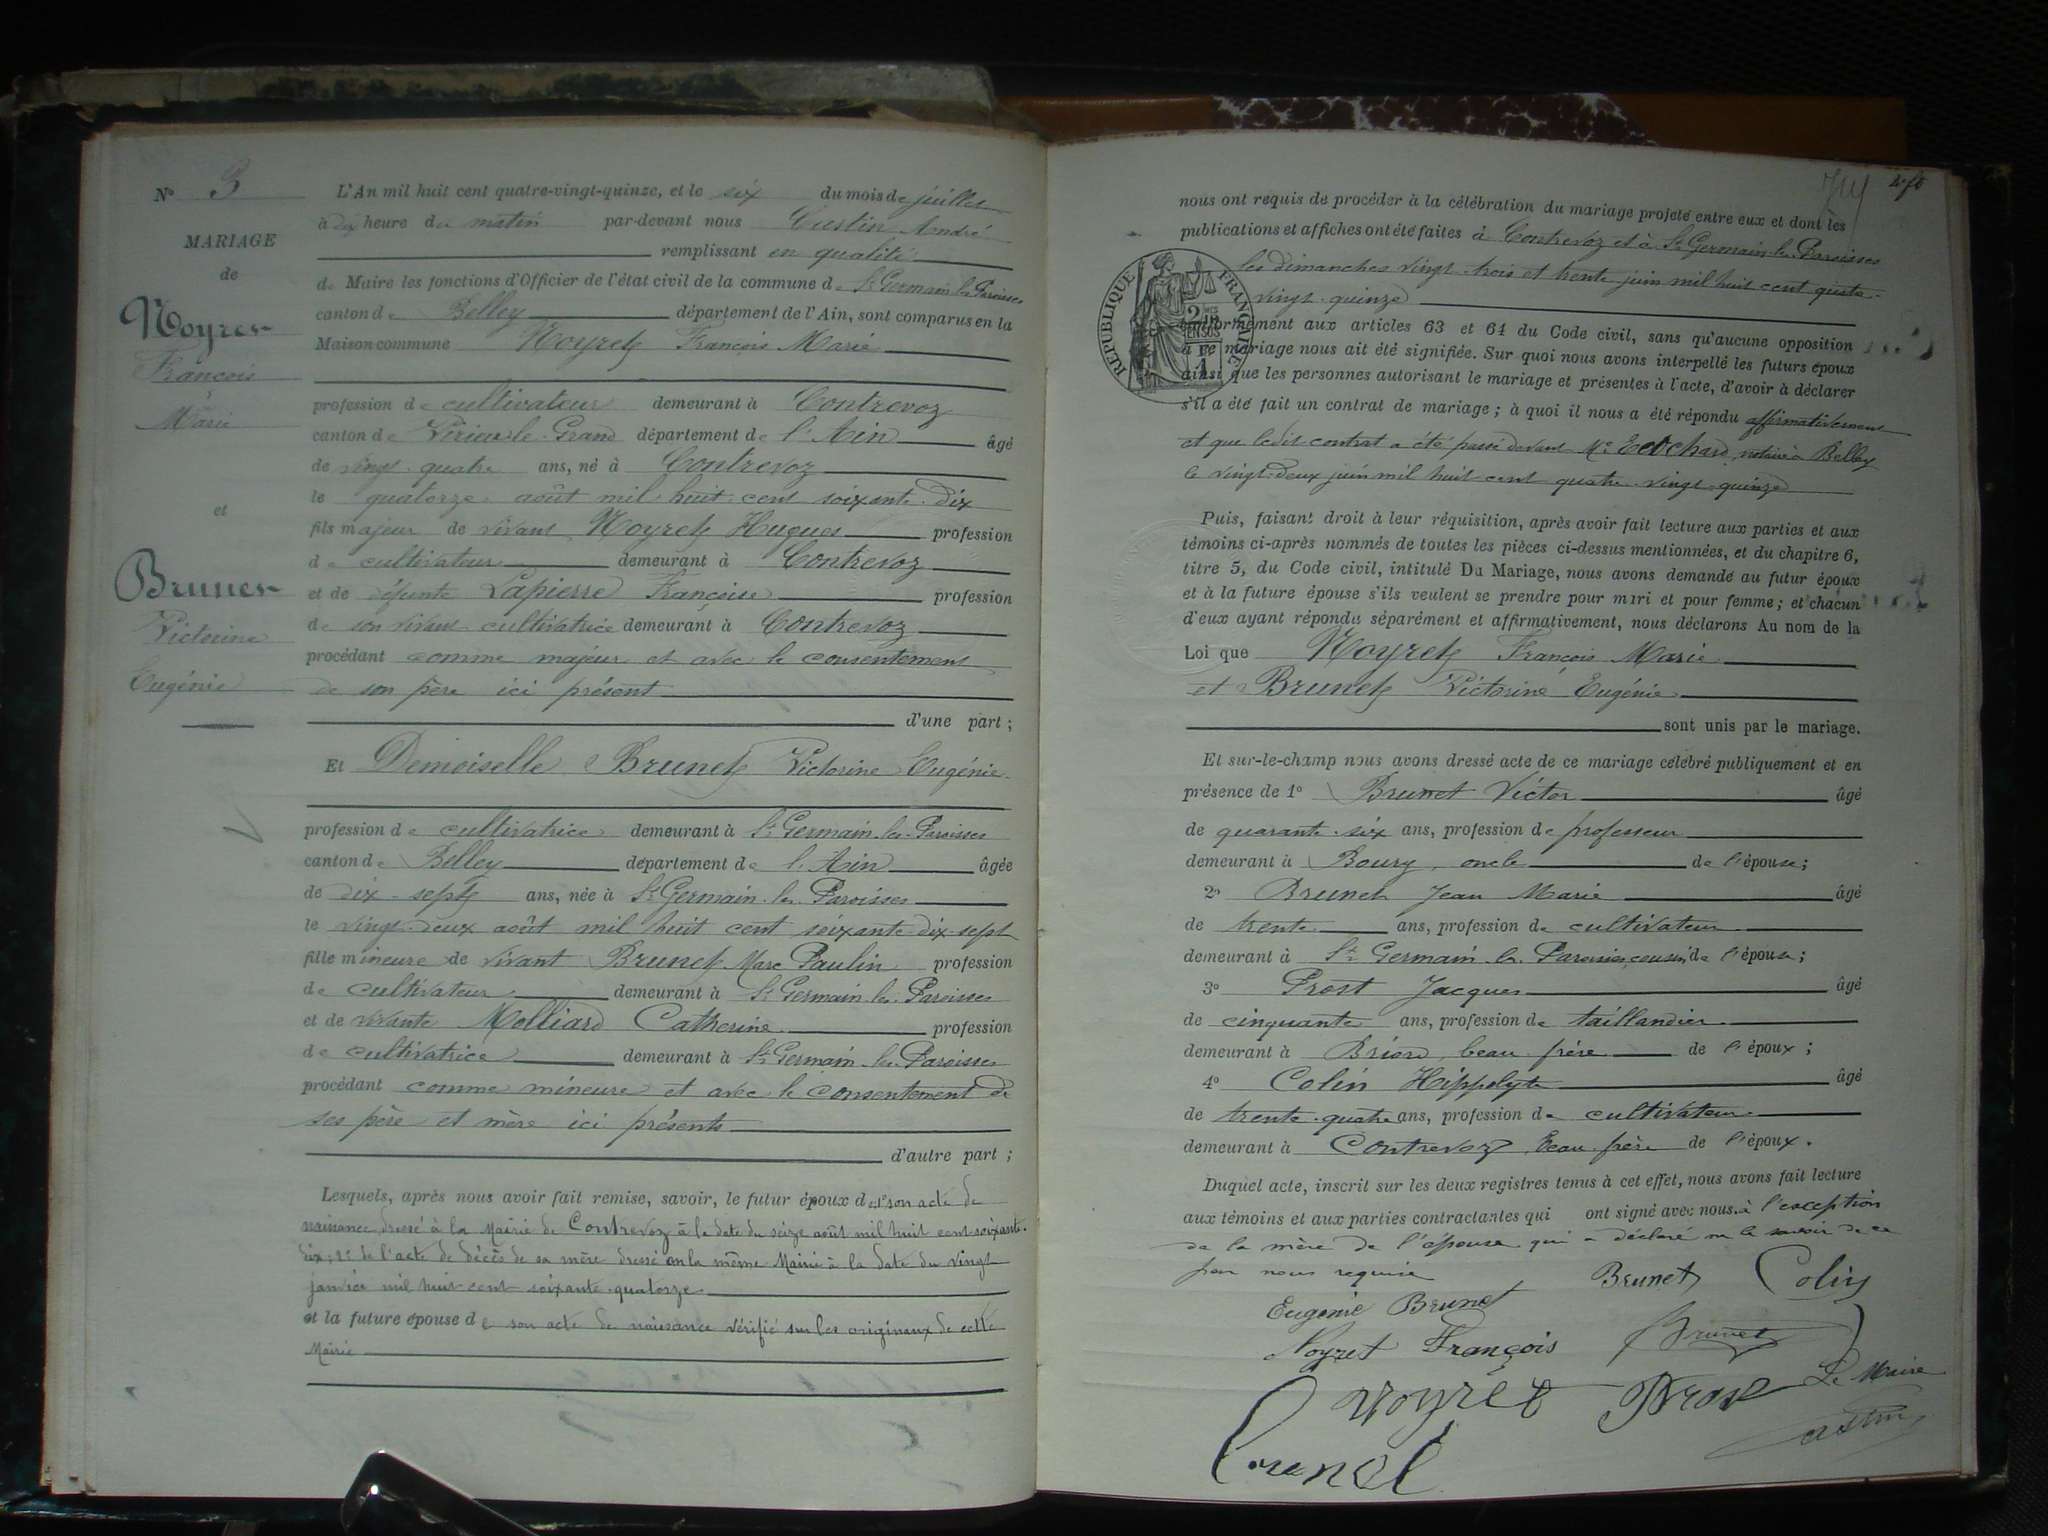 N° 3
MARIAGE
de
Noyret
François
Marie
et
Brunet
Victorine
Eugénie
L'An mil huit cent quatre-vingt-quinze, et le six du mois de juillet
à dix heure du matin par-devant nous Custin André
remplissant en qualité
de Maire les fonctions d'Officier de l'état civil de la commune de St Germain les Paroisses
canton de Belley département de l'Ain, sont comparus en la
Maison commune Noyret François Marie
profession de cultivateur demeurant à Contrevoz
canton de Virieu-le-Grand département de l'Ain âgé
de vingt-quatre ans, né à Contrevoz
le quatorze août mil huit cent soixante-dix
fils majeur de vivant Noyret Hugues profession
de cultivateur demeurant à Contrevoz
et de défunte Lapierre Françoise profession
de son vivant cultivatrice demeurant à Contrevoz
procédant comme majeur et avec le consentement
de son père ici présent
d'une part ;
Et Demoiselle Brunet Victorine Eugénie
profession de cultivatrice demeurant à St Germain-les-Paroisses
canton de Belley département de l'Ain âgée
de dix-sept ans, née à St Germain-les-Paroisses
le vingt-deux août mil huit cent soixante-dix-sept
fille mineure de vivant Brunet Marc Paulin profession
de cultivateur demeurant à St Germain-les-Paroisses
et de vivante Molliard Catherine profession
de cultivatrice demeurant à St Germain-les-Paroisses
procédant comme mineure et avec le consentement de
ses père et mère ici présents
d'autre part ;
Lesquels, après nous avoir fait remise, savoir, le futur époux de 1° son acte de
naissance dressé à la Mairie de Contrevoz à la date du seize août mil huit cent soixante-
dix; 2° de l'acte de décès de sa mère dressé en la même Mairie à la date du vingt
janvier mil huit cent soixante-quatorze
et la future épouse de son acte de naissance vérifié sur les originaux de cette
Mairie
nous ont requis de procéder à la célébration du mariage projeté entre eux et dont les
publications et affiches ont été faites à Contrevoz et à St Germain-les-Paroisses
les dimanches vingt-trois et trente juin mil huit cent quatre-
vingt-quinze
RÉPUBLIQUE FRANÇAISE
conformément aux articles 63 et 64 du Code civil, sans qu'aucune opposition
à ce mariage nous ait été signifiée. Sur quoi nous avons interpellé les futurs époux
ainsi que les personnes autorisant le mariage et présentes à l'acte, d'avoir à déclarer
s'il a été fait un contrat de mariage ; à quoi il nous a été répondu affirmativement
et que ledit contrat a été passé devant Me notaire à Belley
le vingt-deux juin mil huit cent quatre-vingt-quinze
Puis, faisant droit à leur réquisition, après avoir fait lecture aux parties et aux
témoins ci-après nommés de toutes les pièces ci-dessus mentionnées, et du chapitre 6,
titre 5, du Code civil, intitulé Du Mariage, nous avons demandé au futur époux
et à la future épouse s'ils veulent se prendre pour mari et pour femme ; et chacun
d'eux ayant répondu séparément et affirmativement, nous déclarons Au nom de la
Loi que Noyret François Marie
et Brunet Victorine Eugénie
sont unis par le mariage.
Et sur-le-champ nous avons dressé acte de ce mariage célébré publiquement et en
présence de 1° Brunet Victor âgé
de quarante-six ans, profession de professeur
demeurant à Bourg, oncle de l'épouse ;
2° Brunet Jean Marie âgé
de trente ans, profession de cultivateur
demeurant à St Germain-les-Paroisses, cousin de l'épouse ;
3° Prost Jacques âgé
de cinquante ans, profession de taillandier
demeurant à Briord, beau frère de l'époux ;
4° Colin Hippolyte âgé
de trente-quatre ans, profession de cultivateur
demeurant à Contrevoz, beau frère de l'époux.
Duquel acte, inscrit sur les deux registres tenus à cet effet, nous avons fait lecture
aux témoins et aux parties contractantes qui ont signé avec nous à l'exception
de la mère de l'épouse qui a déclaré ne le savoir de ce
par nous requise
Brunet Colin
Eugénie Brunet
Noyret François Brunet
Noyret Prost Le Maire
Brunet Custin